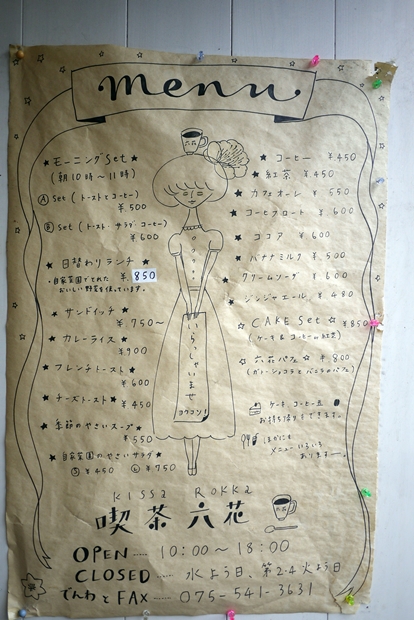 menu
★モーニングSet★
(朝10時～11時)
Ⓐ Set (トーストとコーヒー)
¥500
Ⓑ Set (トースト・サラダ・コーヒー)
¥600
★日替わりランチ★
・自家菜園でとれた ¥850
おいしい野菜を使っています。
★サンドイッチ★
¥750～
★カレーライス★
¥900
★フレンチトースト★
¥600
★チーズトースト★
¥450
★季節のやさいスープ★
¥550
★自家菜園のやさいサラダ★
Ⓢ ¥450 Ⓛ ¥750
いらっしゃいませ
ヨウコソ!
★コーヒー ¥450
★紅茶 ¥450
★カフェオーレ ¥550
★コーヒーフロート ¥600
★ココア ¥600
★バナナミルク ¥500
★クリームソーダ ¥600
★ジンジャエール ¥480
☆CAKE Set☆ ¥850
(ケーキ&コーヒーor紅茶)
☆六花パフェ☆ ¥800
(ガトーショコラとバニラのパフェ)
ケーキ コーヒー豆
お持ち帰りできます。
ほかにも
メニューいろいろ
あります
kissa Rokka
喫茶六花
OPEN 10:00～18:00
CLOSED 水よう日、第2・4火よう日
でんわとFAX 075-541-3631